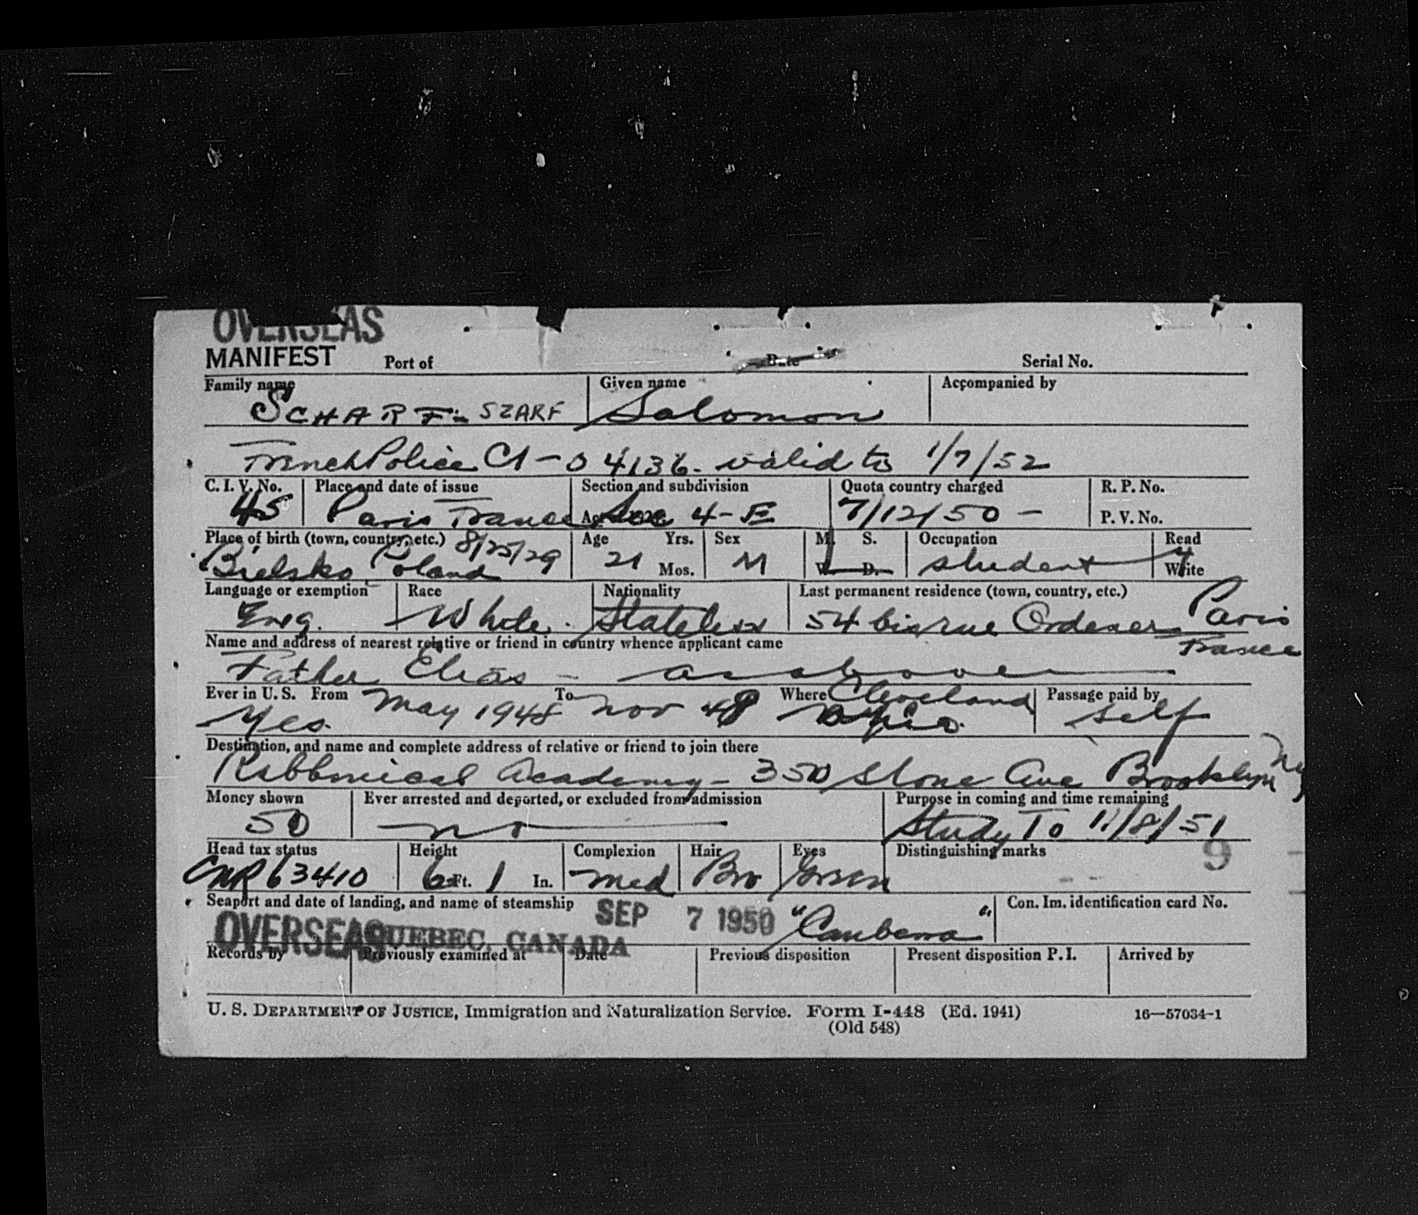 OVERSEAS
MANIFEST Port of Date Serial No.
Family name Given name Accompanied by
SCHARF - SZARF Salomon
French Police Ct - 04136 - valid to 1/7/52
C. I. V. No. Place and date of issue Section and subdivision Quota country charged R. P. No.
45 Paris France Sec 4-E 7/12/50 - P. V. No.
Place of birth (town, country, etc.) 8/25/29 Age Yrs. Sex M. S. Occupation Read
Bielsko Poland 21 Mos. M W. D. student Write
Language or exemption Race Nationality Last permanent residence (town, country, etc.)
Eng. White. Stateless 54 bis rue Ordener Paris
France
Name and address of nearest relative or friend in country whence applicant came
Father Elias - as above
Ever in U. S. From To Where Cleveland Passage paid by
Yes. May 1948 Nov 48 Ohio. self
Destination, and name and complete address of relative or friend to join there
Rabbinical Academy - 350 Stone Ave Brooklyn NY
Money shown Ever arrested and deported, or excluded from admission Purpose in coming and time remaining
50 no Study To 11/8/51
Head tax status Height Complexion Hair Eyes Distinguishing marks 9
CNR 63410 6 Ft. 1 In. Med Bro Green
Seaport and date of landing, and name of steamship SEP 7 1950 "Canberra" Con. Im. identification card No.
OVERSEAS QUEBEC, CANADA
Records by Previously examined at Date Previous disposition Present disposition P. I. Arrived by
U. S. DEPARTMENT OF JUSTICE, Immigration and Naturalization Service. Form I-448 (Ed. 1941) 16—57034-1
(Old 548)